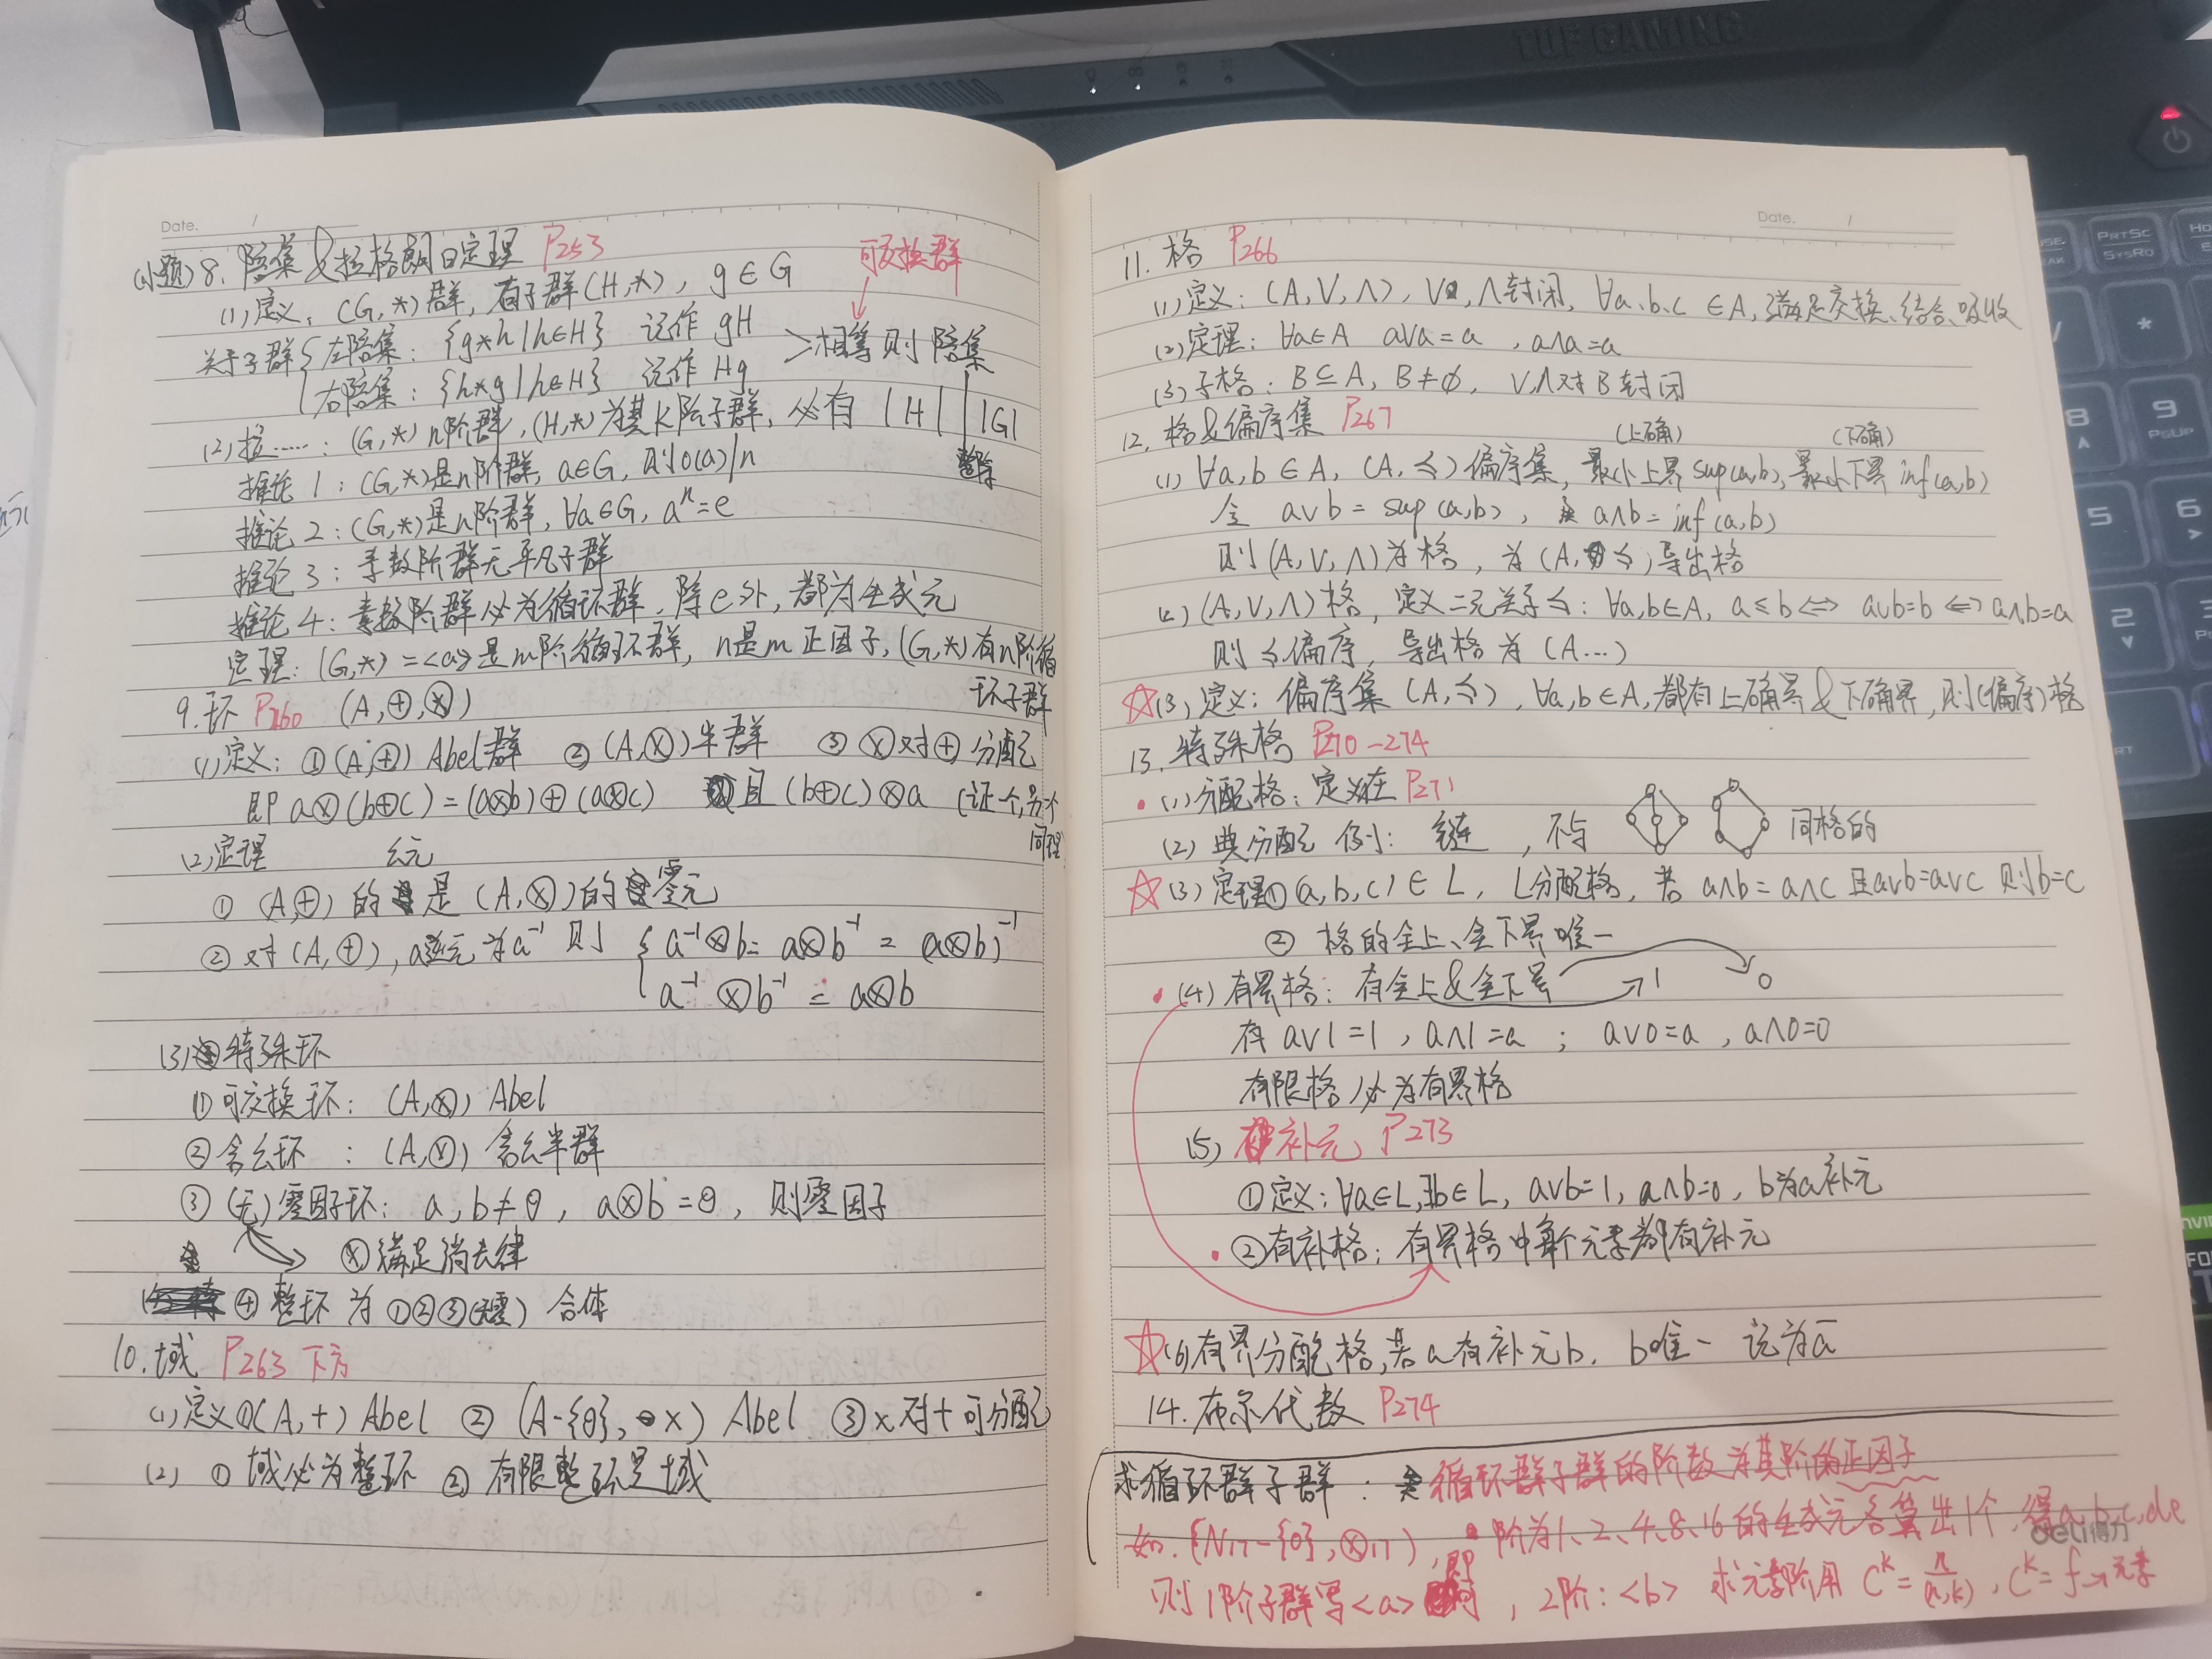 TUF GAMING
Date. /
(小题) 8. 陪集&拉格朗日定理 P253 可交换群
(1)定义: (G,*)群, 有子群(H,*), g∈G
关于子群{左陪集: {g*h|h∈H} 记作 gH >相等则陪集
右陪集: {h*g|h∈H} 记作 Hg
(2)拉……: (G,*) n阶群, (H,*)为其k阶子群, 必有 |H| | |G|
整除
推论1: (G,*)是n阶群, a∈G, 则o(a)|n
推论2: (G,*)是n阶群, ∀a∈G, aⁿ=e
推论3: 素数阶群无平凡子群
推论4: 素数阶群必为循环群, 除e外, 都为生成元
定理: (G,*)=<a>是m阶循环群, n是m正因子, (G,*)有n阶循
环子群
9. 环 P260 (A,⊕,⊗)
(1)定义: ①(A,⊕) Abel群 ②(A,⊗)半群 ③⊗对⊕分配
即 a⊗(b⊕c)=(a⊗b)⊕(a⊗c) 且 (b⊕c)⊗a (证一个,另一个
同理)
(2)定理 幺元
① (A,⊕)的是(A,⊗)的零元
② 对(A,⊕), a逆元为a⁻¹ 则 { a⁻¹⊗b= a⊗b⁻¹ = (a⊗b)⁻¹
a⁻¹⊗b⁻¹ = a⊗b
(3)特殊环
① 可交换环: (A,⊗) Abel
② 含幺环 : (A,⊗) 含幺半群
③ (无)零因子环: a,b≠θ, a⊗b=θ, 则零因子
⊗满足消去律
④ 整环为①②③(无零)合体
10. 域 P263 下方
(1)定义①(A,+) Abel ② (A-{θ}, ×) Abel ③×对+可分配
(2) ① 域必为整环 ② 有限整环是域
Date. /
11. 格 P266
(1)定义: (A,∨,∧), ∨,∧封闭, ∀a、b、c ∈A, 满足交换、结合、吸收
(2)定理: ∀a∈A a∨a=a , a∧a=a
(3)子格: B⊆A, B≠∅, ∨,∧对B封闭
12. 格&偏序集 P267 (上确) (下确)
(1) ∀a,b∈A, (A,≤)偏序集, 最小上界sup(a,b), 最小下界inf(a,b)
令 a∨b=sup(a,b), a∧b=inf(a,b)
则(A,∨,∧)为格, 为(A,≤)导出格
(2) (A,∨,∧)格, 定义二元关系≤: ∀a,b∈A, a≤b⇔a∨b=b⇔a∧b=a
则≤偏序, 导出格为(A…)
☆(3)定义: 偏序集(A,≤), ∀a,b∈A, 都有上确界&下确界, 则(偏序)格
13. 特殊格 P270-274
(1)分配格: 定义在 P271
(2) 典分配 例: 链 , 不与 同格的
☆(3)定理①(a,b,c)∈L, L分配格, 若 a∧b=a∧c 且a∨b=a∨c 则b=c
② 格的全上、全下界唯一
(4)有界格: 有全上&全下界 →1 0
有 a∨1=1, a∧1=a ; a∨0=a, a∧0=0
有限格必为有界格
(5) 补元 P273
①定义: ∀a∈L, ∃b∈L, a∨b=1, a∧b=0, b为a补元
②有补格: 有界格中每个元素都有补元
☆(6)有界分配格, 若a有补元b, b唯一 记为ā
14. 布尔代数 P274
求循环群子群: 循环群子群的阶数为其阶的正因子
如. (N₁₇-{0},⊗₁₇), 阶为1、2、4、8、16的生成元各算出1个, 得a、b、c,d,e
即
则1阶子群写<a> , 2阶:<b> 求元素阶用 Cᵏ= n/(n,k), Cᵏ=f→元素
deli得力
PRTSC
SYSRQ
*
8
9
PGUP
5
6
2